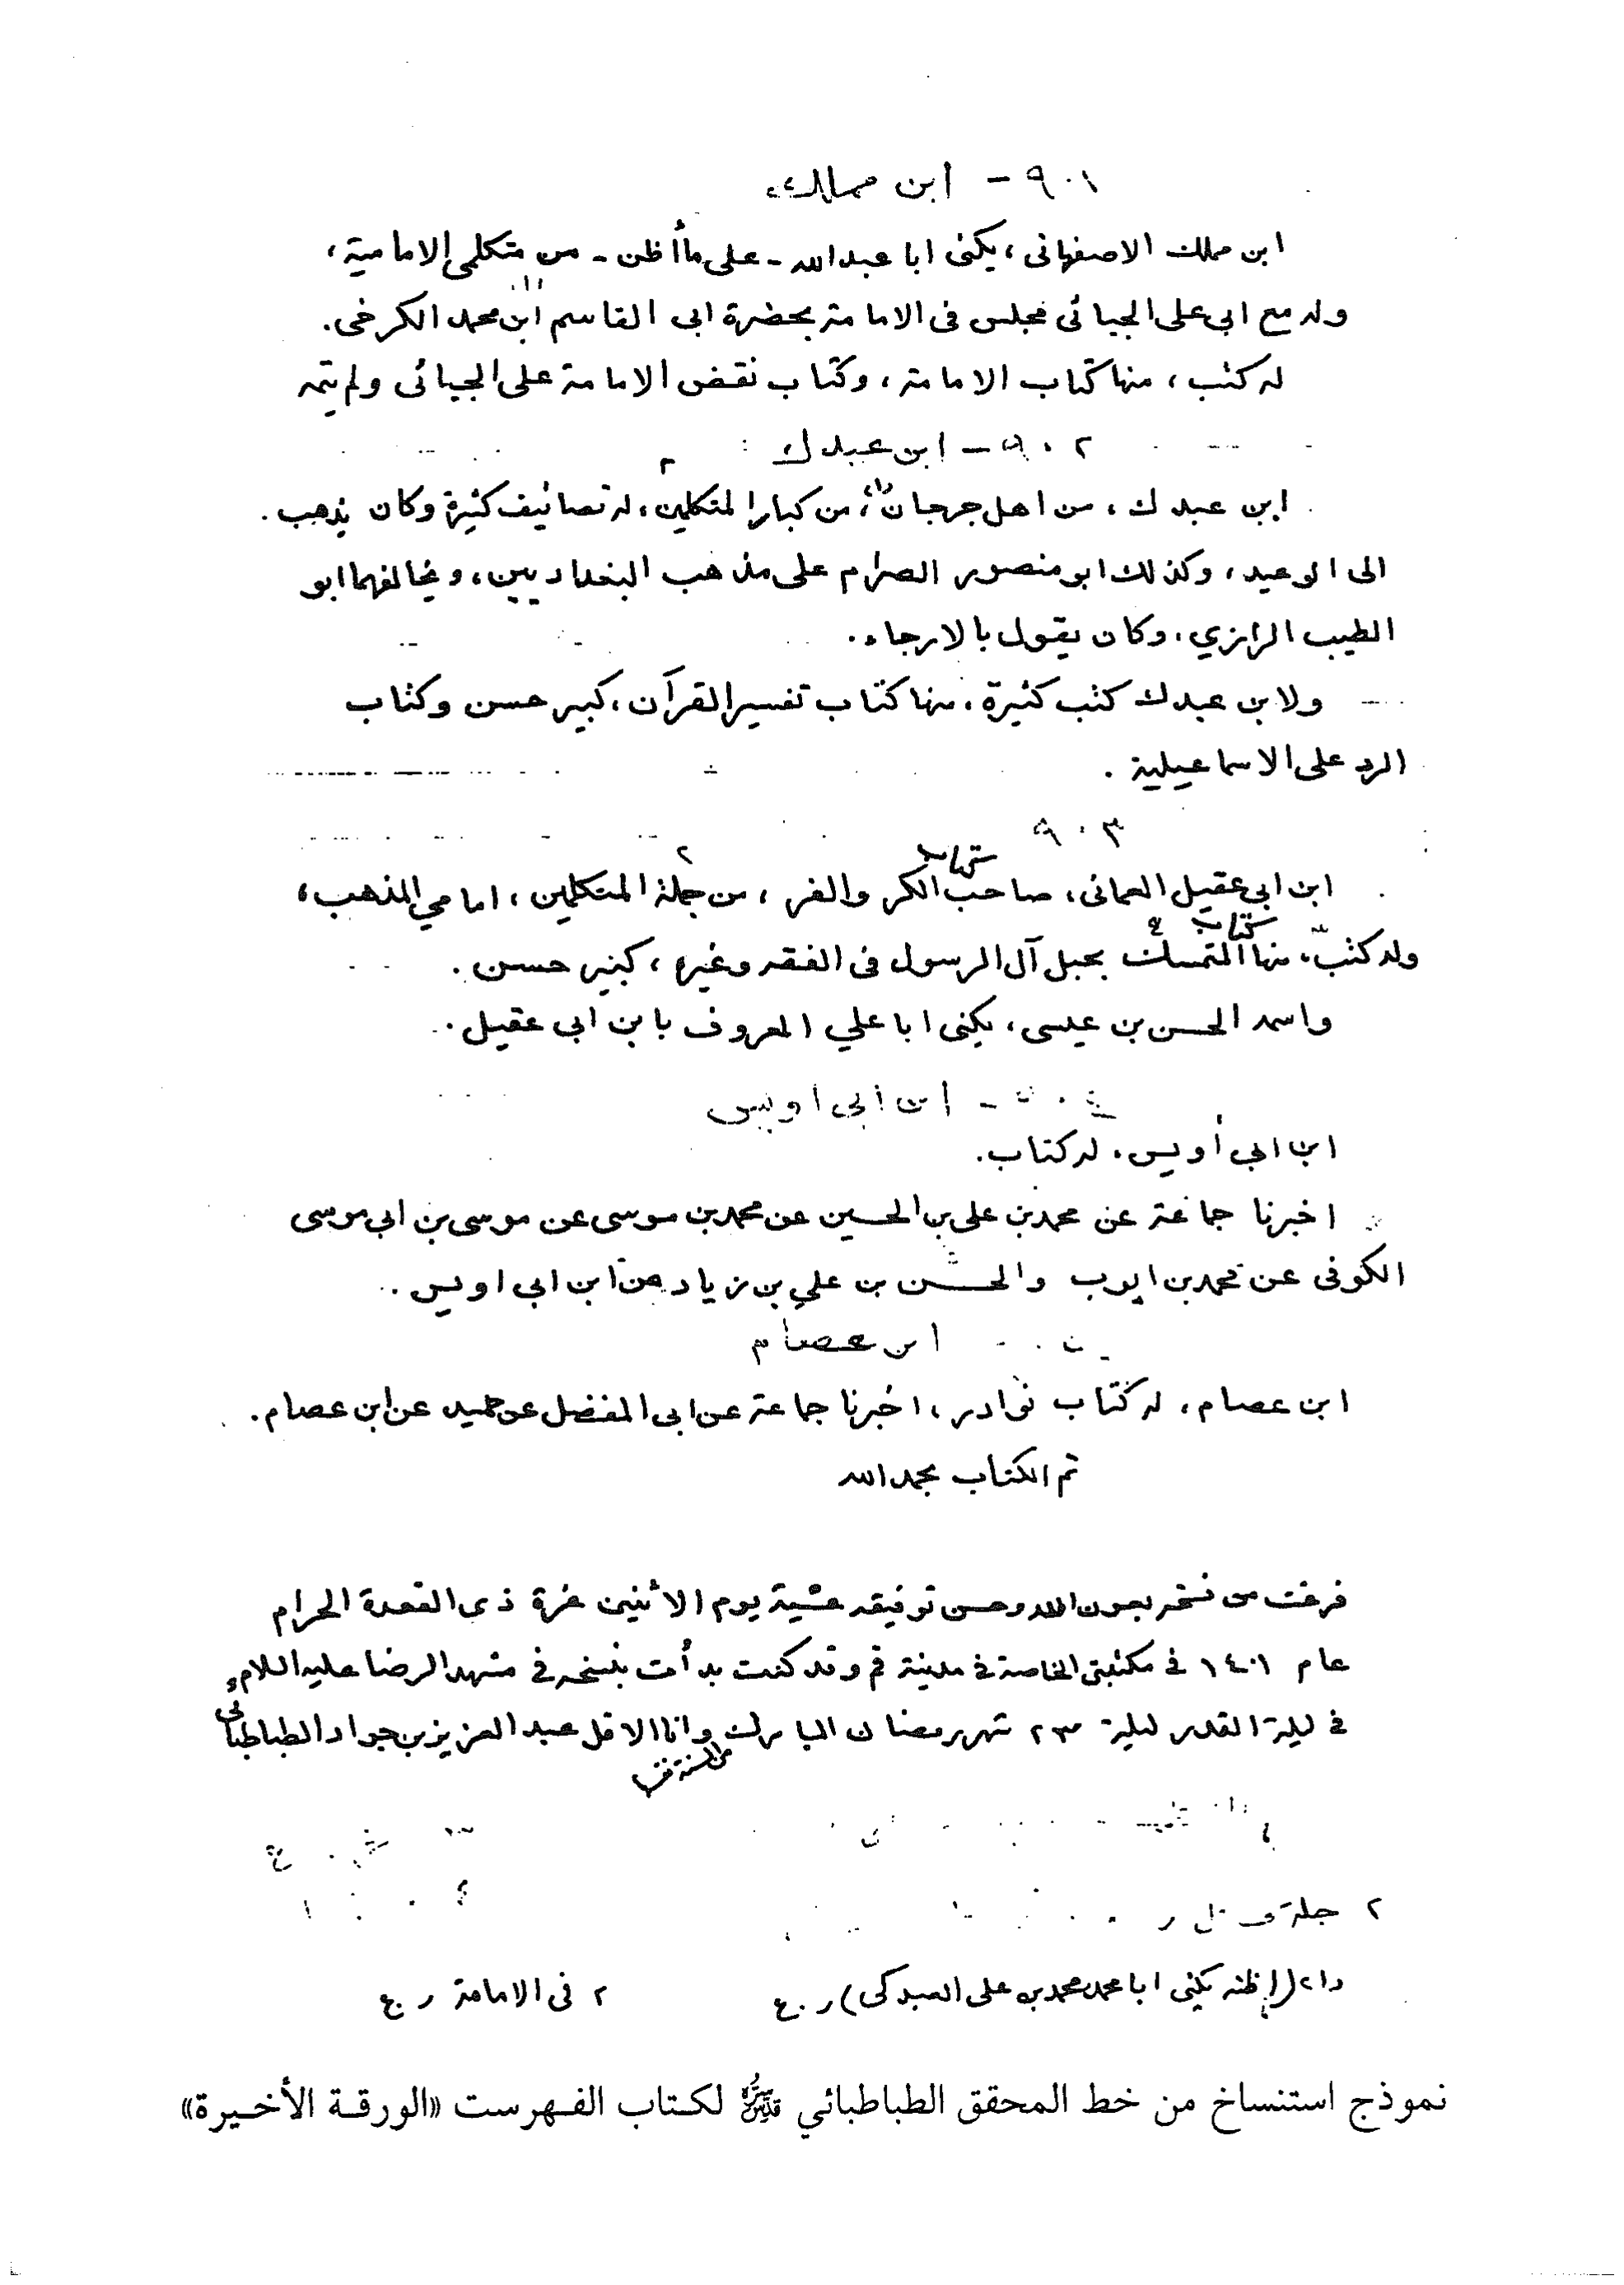 ٩٠١ - ابن مملك
ابن مملك الاصفهانى، يكنى ابا عبدالله - على ما أظن - من متكلمى الامامية،
وله مع ابى على الجبائى مجلس فى الامامة بحضرة ابى القاسم ابن محمد الكرخى.
له كتب، منها كتاب الامامة، وكتاب نقض الامامة على الجبائى ولم يتمه
٩٠٢ - ابن عبدك
ابن عبدك، من اهل جرجان (١)، من كبار المتكلمين ٢، له تصانيف كثيرة وكان يذهب
الى الوعيد، وكذلك ابو منصور الصرام على مذهب البغداديين، ويخالفهما ابو
الطيب الرازي، وكان يقول بالارجاء.
ولابن عبدك كتب كثيرة، منها كتاب تفسير القرآن، كبير حسن وكتاب
الرد على الاسماعيلية.
٩٠٣
ابن ابى عقيل العمانى، صاحب كتاب الكر والفر، من جملة ٢ المتكلمين، امامي المذهب،
وله كتب، منها كتاب المتمسك بحبل آل الرسول فى الفقه وغيره، كبير حسن.
واسمه الحسن بن عيسى، يكنى ابا علي المعروف بابن ابى عقيل.
- ابن ابى اويس
ابن ابى أويس، له كتاب.
اخبرنا جماعة عن محمد بن على بن الحسين عن محمد بن موسى عن موسى بن ابى موسى
الكوفى عن محمد بن ايوب والحسن بن علي بن زياد عن ابن ابى اويس.
ابن عصام
ابن عصام، له كتاب نوادر، اخبرنا جماعة عن ابى المفضل عن حميد عن ابن عصام.
تم الكتاب بحمد الله
فرغت من نسخه بعون الله وحسن توفيقه عشية يوم الاثنين غرة ذى القعدة الحرام
عام ١٤٠١ في مكتبتي الخاصة في مدينة قم وقد كنت بدأت بنسخه في مشهد الرضا عليه السلام
في ليلة القدر ليلة ٢٣ شهر رمضان المبارك من السنة وانا الاقل عبد العزيز بن جواد الطباطبائي
٢ جلة
(١) (اظنه يكنى ابا محمد محمد بن على العبدكى) ر. ع
٢ فى الامامة ر. ع
نموذج استنساخ من خط المحقق الطباطبائي قدس سره لكتاب الفهرست «الورقة الأخيرة»